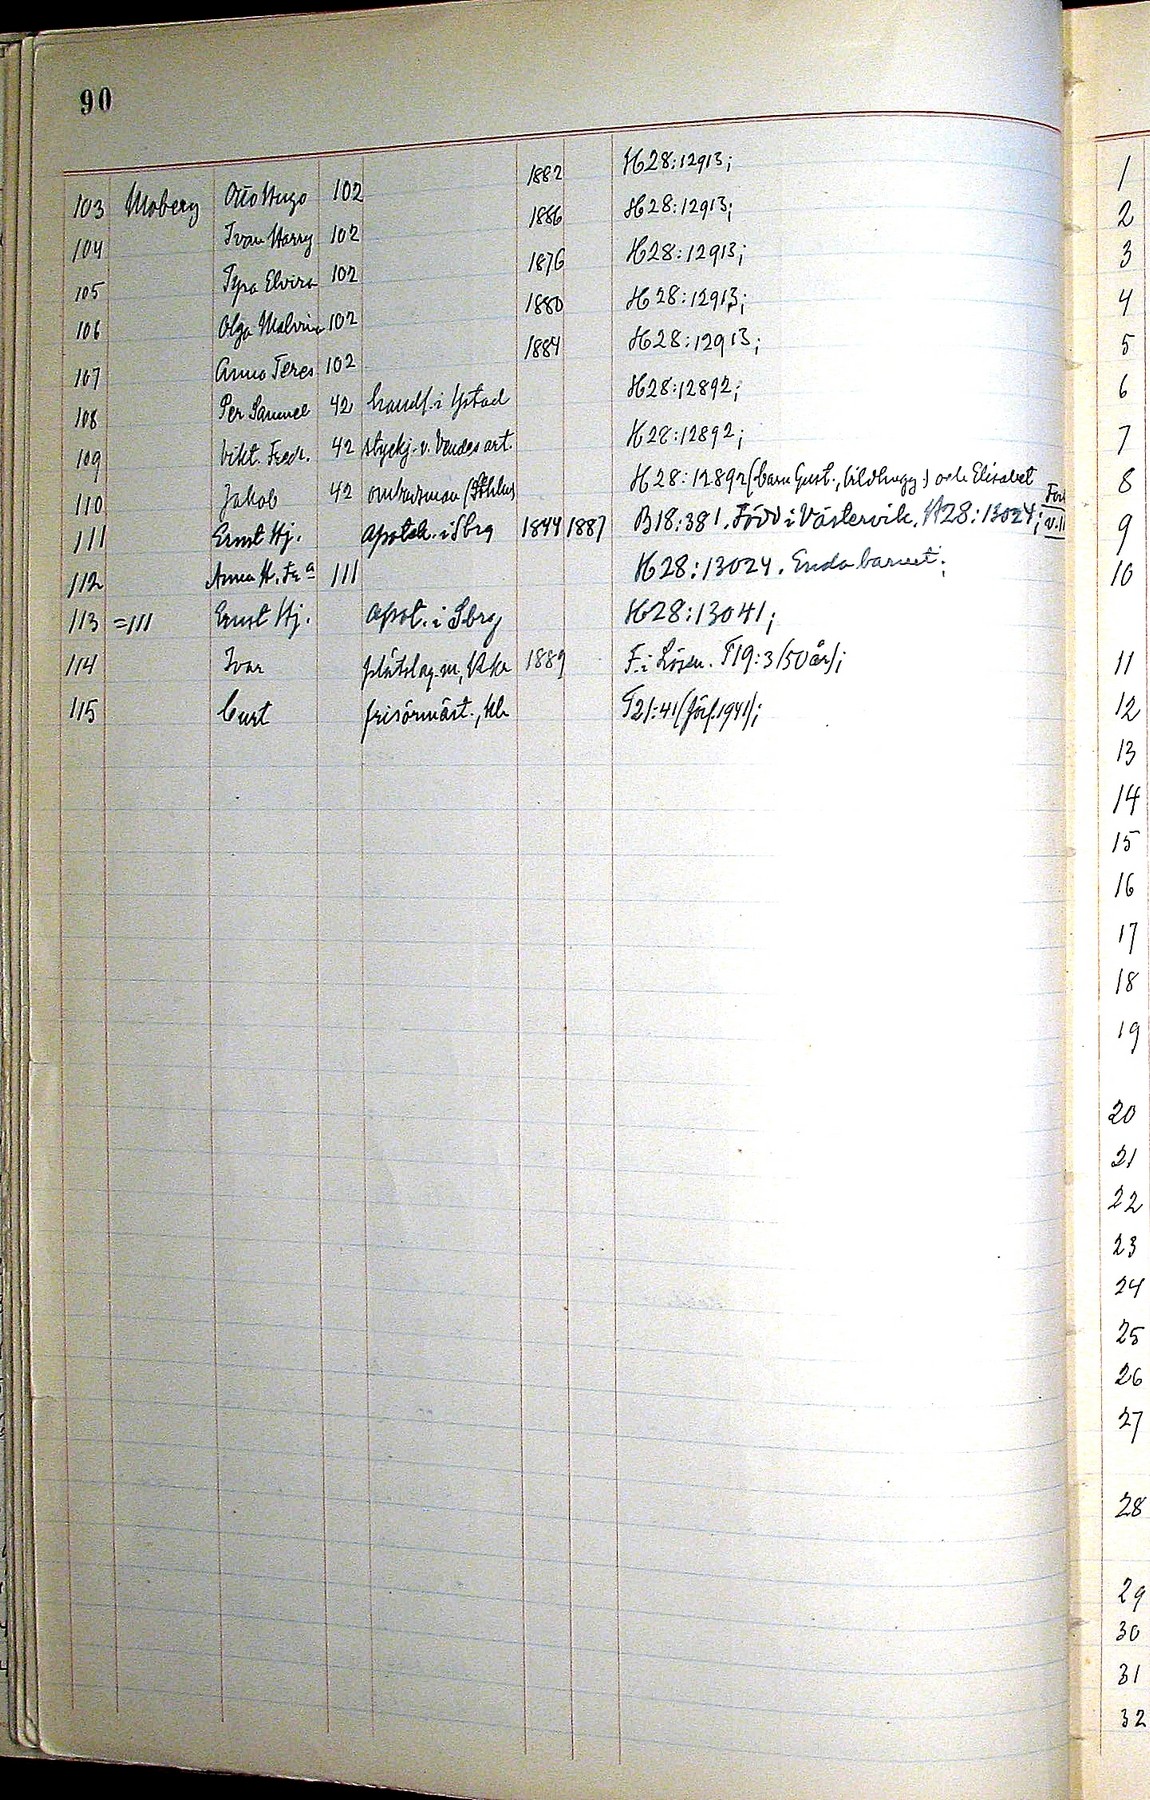 90
103 Moberg Otto Hugo 102 1882 H28:12913;
104 Ivan Harry 102 1886 H28:12913;
105 Tyra Elvira 102 1876 H28:12913;
106 Olga Malvina 102 1880 H28:12913;
107 Anna Teres 102 1884 H28:12913;
108 Per Samuel 42 handl. i Ystad H28:12892;
109 Vikt. Fredr. 42 styckj. v. Vendes art. H28:12892;
110 Jakob 42 ombudsman (Sthlm) H28:12892 (barn Gust., bildhugg.) och Elisabet
111 Ernst Hj. apotek. i Sbrg 1844 1887 B18:381. Född i Västervik. H28:13024;
112 Anna H. Fr a 111 H28:13024. Enda barnet;
113 =111 Ernst Hj. apot. i Sbrg H28:13041;
114 Ivar plåtslag.m, Kka 1889 F. i Lösen. T19:3 (50 år);
115 Curt frisörmäst., T21:41 (förl. 1941);
1
2
3
4
5
6
7
8
9
10
11
12
13
14
15
16
17
18
19
20
21
22
23
24
25
26
27
28
29
30
31
32